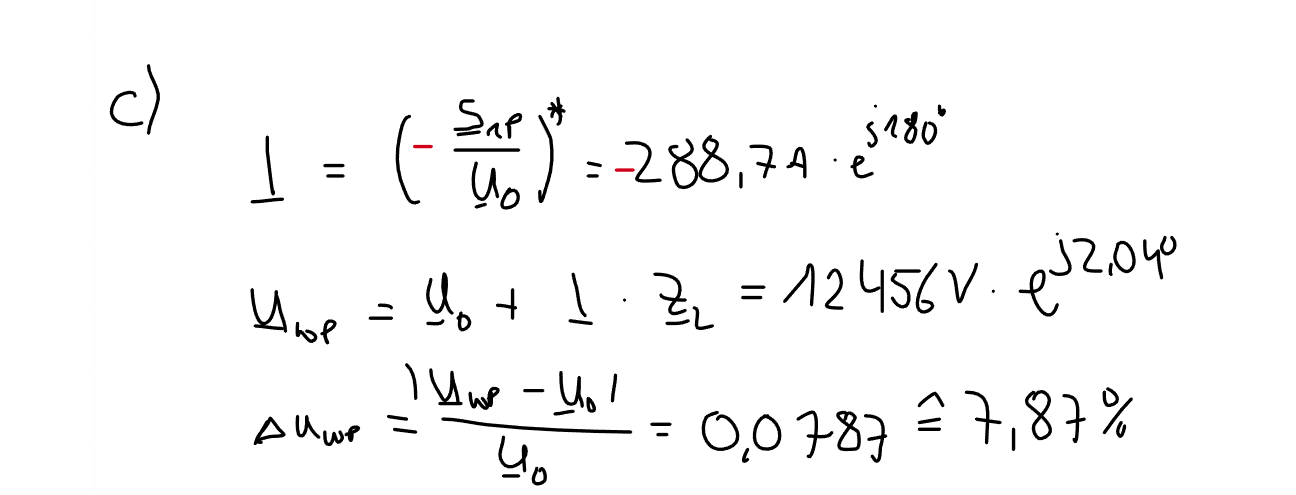 c)
I = (- S₁ₚ / U₀)* = -288,7A · e^j180°
U_WP = U₀ + I · Z_L = 12456V · e^j2,04°
Δu_WP = |U_WP - U₀| / U₀ = 0,0787 ≙ 7,87%